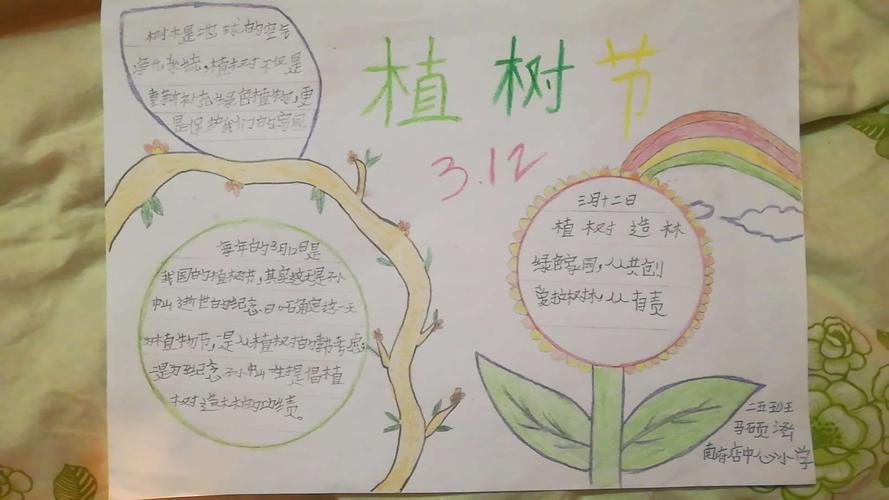 植树节
3.12
树木是地球的空气
净化系统,植树不仅是
重新补充绿色植物,更
是保护我们的家园
每年的3月12日是
我国的植树节,其实这天是孙
中山逝世的纪念日,确定这一天
为植物节,是从植树的考虑
是为纪念孙中山生提倡植
树造林的功绩。
三月十二日
植树造林
绿色家园,人共创
爱护树木,人有责
二五班
马硕
南店中心小学